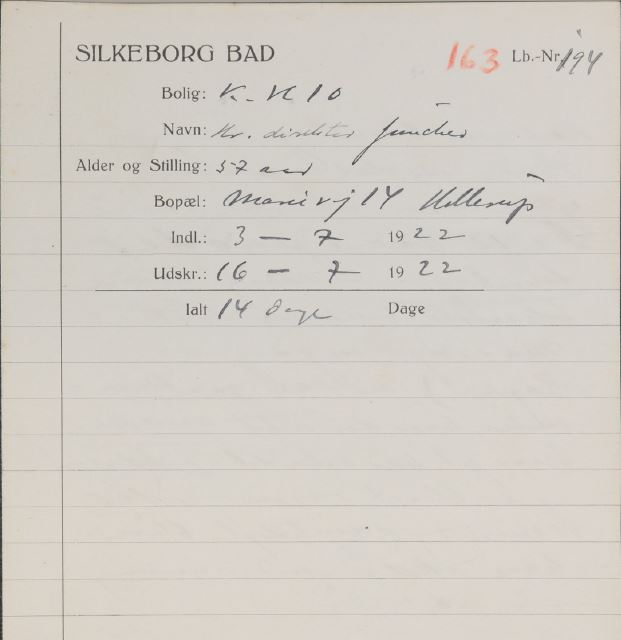 SILKEBORG BAD 163 Lb.-Nr. 194
Bolig: K. K 10
Navn: Hr. direktør Juncker
Alder og Stilling: 57 aar
Bopæl: Marievj 14 Hellerup
Indl.: 3 — 7 1922
Udskr.: 16 — 7 1922
Ialt 14 Dage Dage